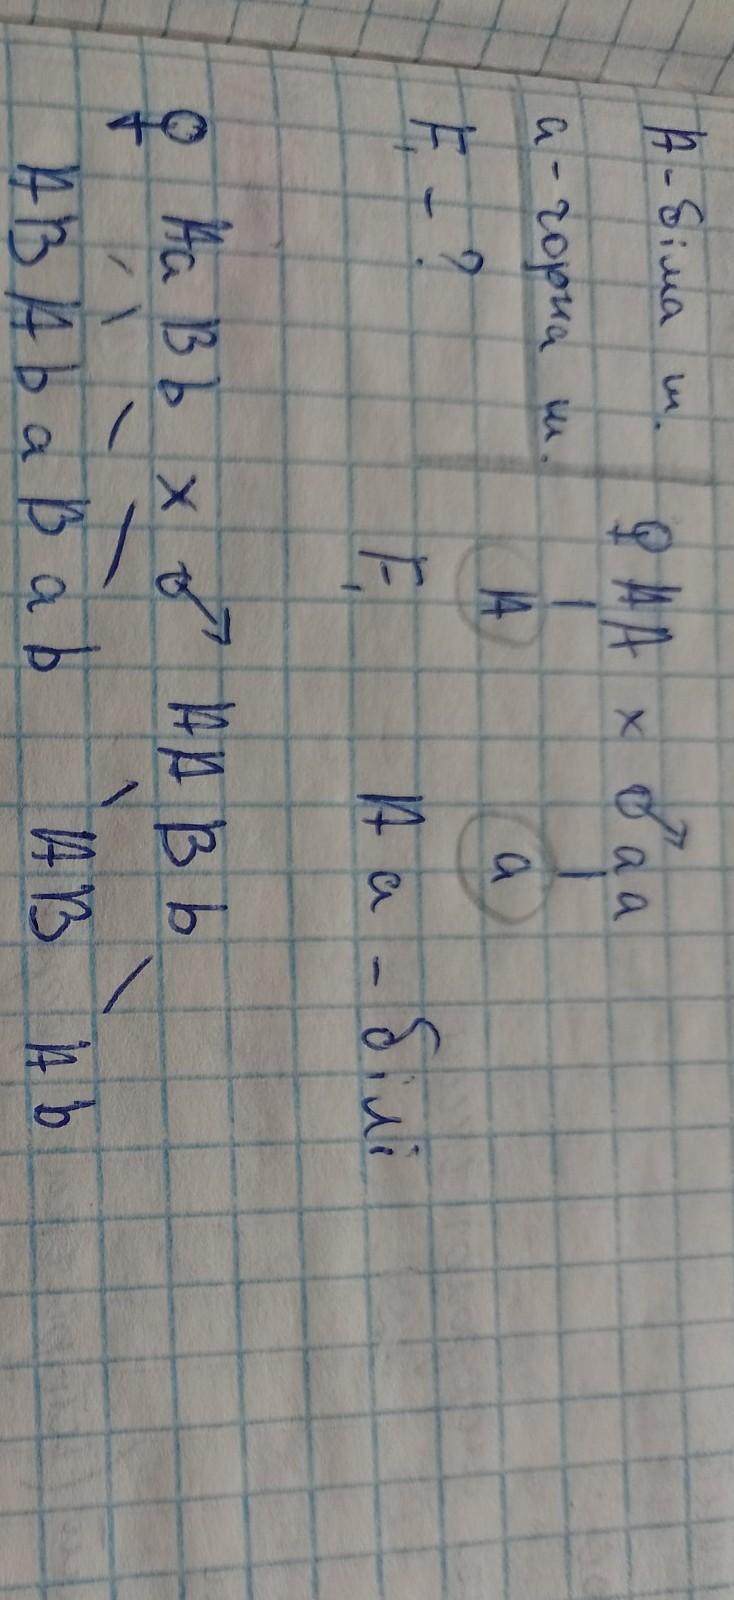 А - біла ш.
а - чорна ш.
F₁ - ?
♀ АА × ♂ аа
А а
F₁ Аа - білі
♀ АаВb × ♂ ААВb
АВ Аb аВ аb АВ Аb